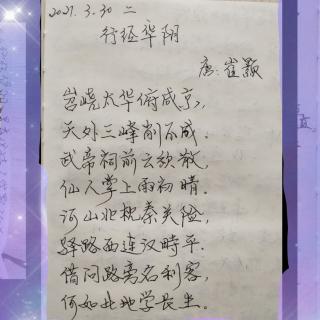 2021.3.30 二
行经华阴
唐:崔颢
岧峣太华俯咸京,
天外三峰削不成.
武帝祠前云欲散,
仙人掌上雨初晴.
河山北枕秦关险,
驿路西连汉畤平.
借问路旁名利客,
何如此地学长生.